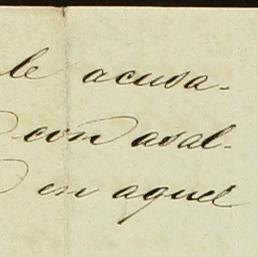 le acusa-
con asal-
en aquel